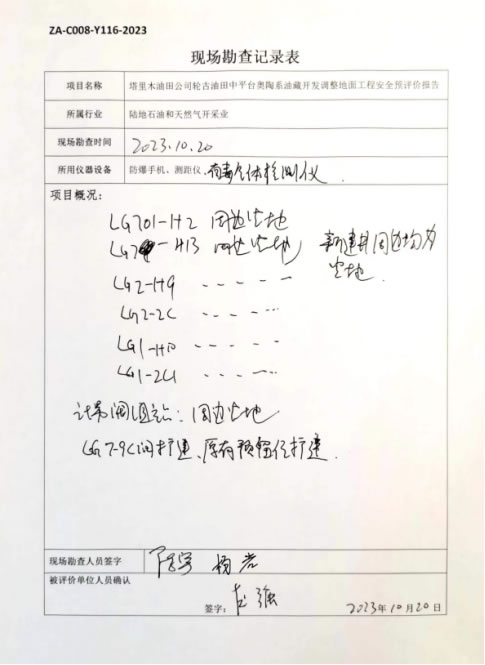 ZA-C008-Y116-2023
现场勘查记录表
项目名称 塔里木油田公司轮古油田中平台奥陶系油藏开发调整地面工程安全预评价报告
所属行业 陆地石油和天然气开采业
现场勘查时间 2023.10.20
所用仪器设备 防爆手机、测距仪、有毒气体检测仪
项目概况:
LG701-H2 周边空地
-H13 周边空地 新建井周边均为
空地.
LG2-H9 - - - - -
LG2-2C - - - - -
LG1- - - - - -
LG1- - - - - -
计 阀组站: 周边空地
LG7-9C 扩建、原有预留位扩建.
现场勘查人员签字 杨
被评价单位人员确认
签字: 强 2023年10月20日